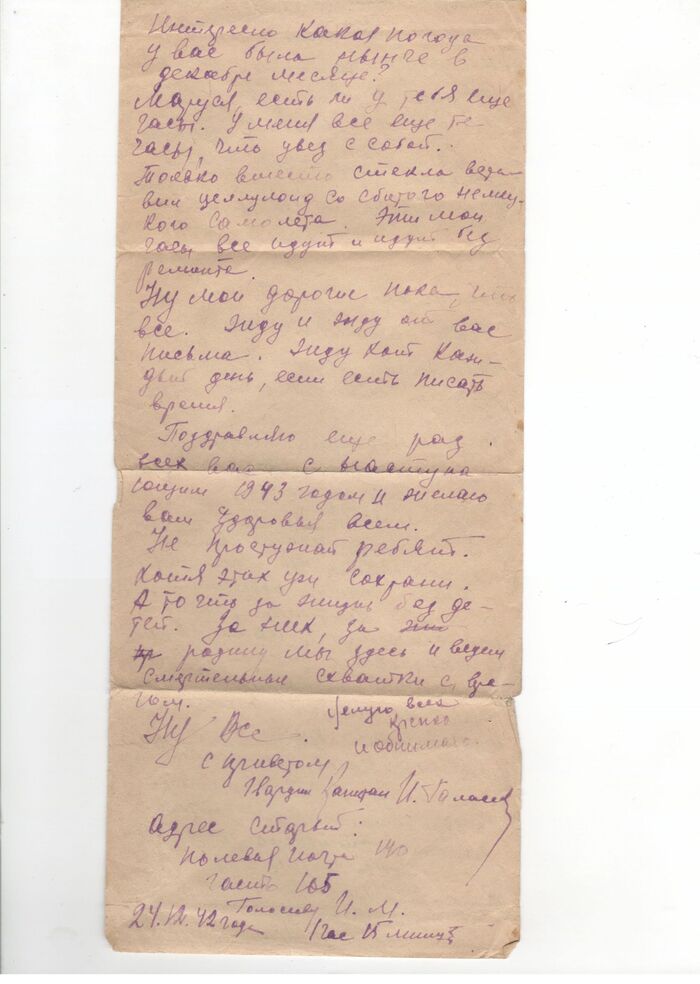 Интересно какая погода
у вас была нынче в
декабре месяце?
Маруся, есть ли у тебя еще
часы. У меня все еще те
часы, что увез с собой.
Только вместо стекла вста-
вил целлулоид со сбитого немец-
кого самолета. Эти мои
часы все идут и идут без
ремонта.
Ну мои дорогие пока, что
все. Жду и жду от вас
письма. Жду хоть каж-
дый день, если есть писать
время.
Поздравляю еще раз
всех вас с наступа
ющим 1943 годом и желаю
вам здоровья всем.
Не простужай ребят.
Хотя этих уж сохрани.
А то что за жизнь без де-
тей. За них, за
родину мы здесь и ведем
смертельные схватки с вра-
гом.
Целую всех
крепко
и обнимаю.
Ну все.
С приветом
Гвардии Капитан И.
Адрес старый:
Полевая почта 140
часть 105
И. М.
24.12.42 года 1 час 15 минут